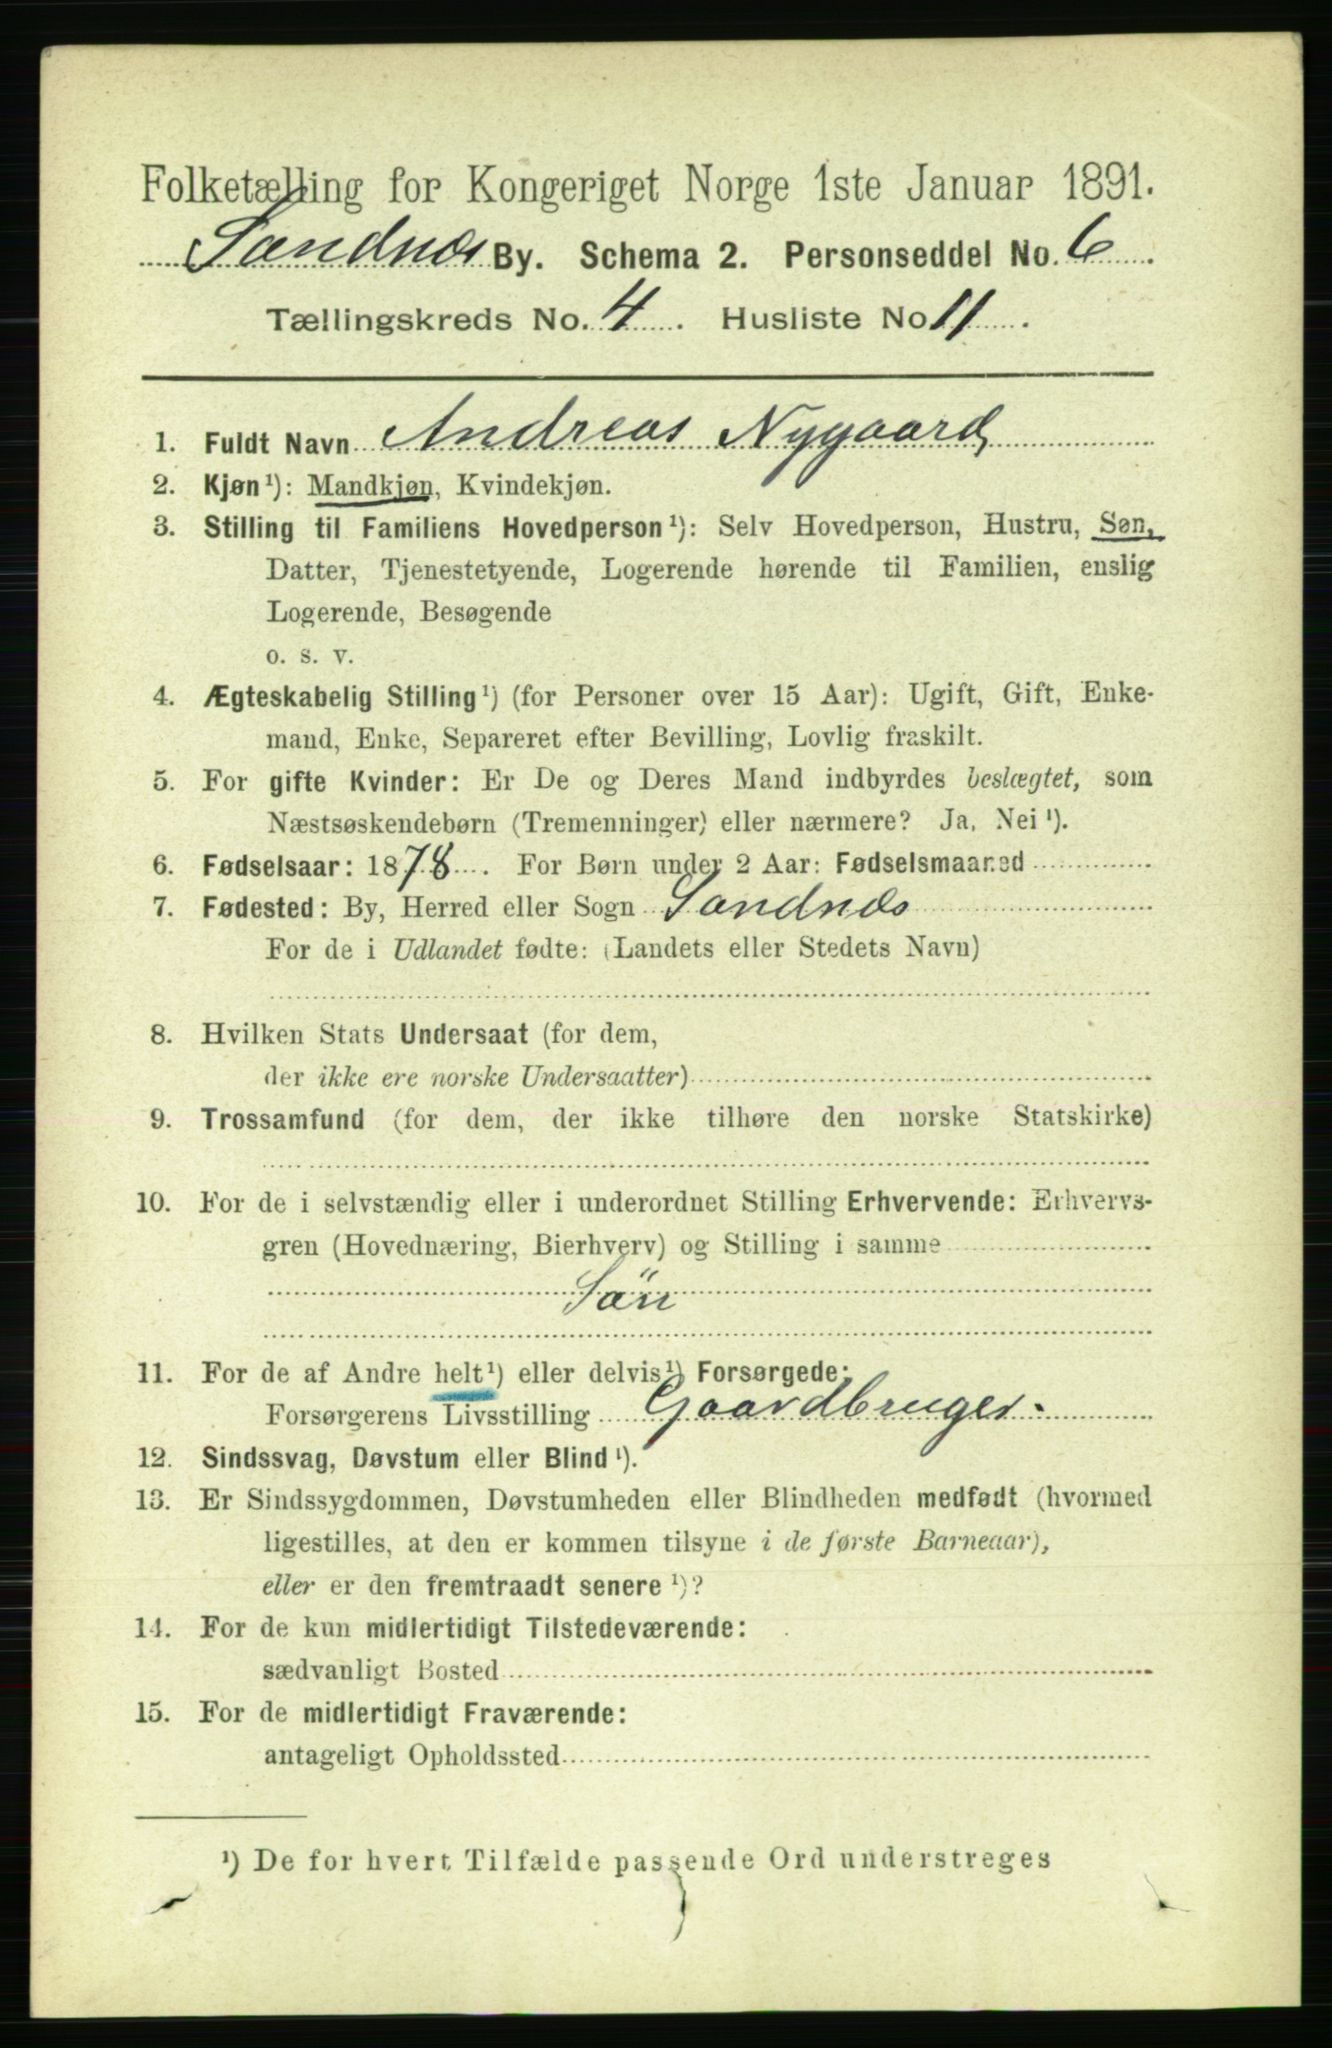 Folketælling for Kongeriget Norge 1ste Januar 1891.
Sandnæs By. Schema 2. Personseddel No. 6
Tællingskreds No. 4. Husliste No 11.
1. Fuldt Navn Andreas Nygaard
2. Kjøn¹): Mandkjøn, Kvindekjøn.
3. Stilling til Familiens Hovedperson¹): Selv Hovedperson, Hustru, Søn,
Datter, Tjenestetyende, Logerende hørende til Familien, enslig
Logerende, Besøgende
o. s. v.
4. Ægteskabelig Stilling¹) (for Personer over 15 Aar): Ugift, Gift, Enke-
mand, Enke, Separeret efter Bevilling, Lovlig fraskilt.
5. For gifte Kvinder: Er De og Deres Mand indbyrdes beslægtet, som
Næstsøskendebørn (Tremenninger) eller nærmere? Ja, Nei¹).
6. Fødselsaar: 1878. For Børn under 2 Aar: Fødselsmaaned
7. Fødested: By, Herred eller Sogn Sandnæs
For de i Udlandet fødte: (Landets eller Stedets Navn)
8. Hvilken Stats Undersaat (for dem,
der ikke ere norske Undersaatter)
9. Trossamfund (for dem, der ikke tilhøre den norske Statskirke)
10. For de i selvstændig eller i underordnet Stilling Erhvervende: Erhvervs-
gren (Hovednæring, Bierhverv) og Stilling i samme
Sön
11. For de af Andre helt¹) eller delvis¹) Forsørgede:
Forsørgerens Livsstilling Gaardbruger.
12. Sindssvag, Døvstum eller Blind¹).
13. Er Sindssygdommen, Døvstumheden eller Blindheden medfødt (hvormed
ligestilles, at den er kommen tilsyne i de første Barneaar),
eller er den fremtraadt senere¹)?
14. For de kun midlertidigt Tilstedeværende:
sædvanligt Bosted
15. For de midlertidigt Fraværende:
antageligt Opholdssted
¹) De for hvert Tilfælde passende Ord understreges